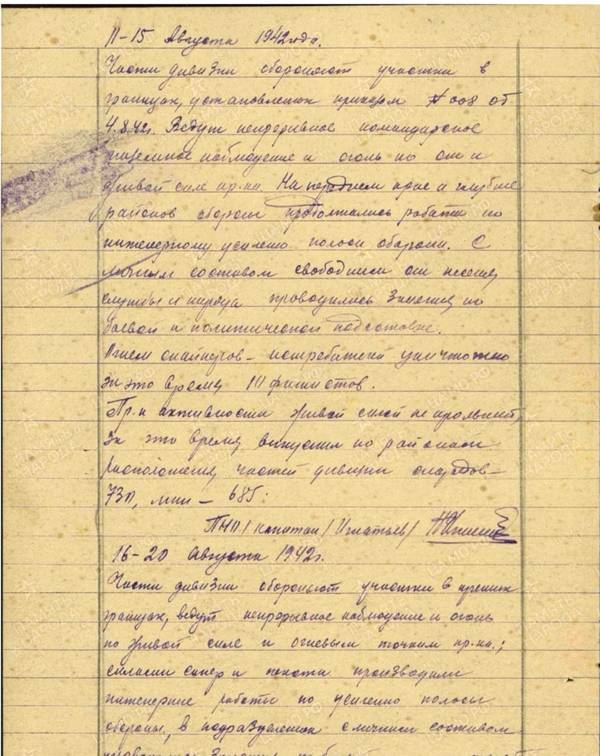 11-15 Августа 1942 года.
Части дивизии обороняют участки в
границах, установленных приказом №008 от
4.8.42г. Ведут непрерывное командирское
наземное наблюдение и огонь по о.т. и
живой силе пр-ка. На переднем крае и глубине
районов обороны продолжались работы по
инженерному усилению полосы обороны. С
личным составом свободным от несения
службы и наряда проводились занятия по
боевой и политической подготовке.
Огнем снайперов-истребителей уничтожено
за это время 111 фашистов.
Пр-к активности живой силой не проявлял,
за это время выпустил по районам
расположения частей дивизии снарядов-
730, мин - 685:
ПНО1 /капитан /Игнатьев/
16-20 Августа 1942г.
Части дивизии обороняют участки в прежних
границах, ведут непрерывное наблюдение и огонь
по живой силе и огневым точкам пр-ка.;
силами сапер и пехоты производили
инженерные работы по усилению полосы
обороны, в подразделениях с личным составом